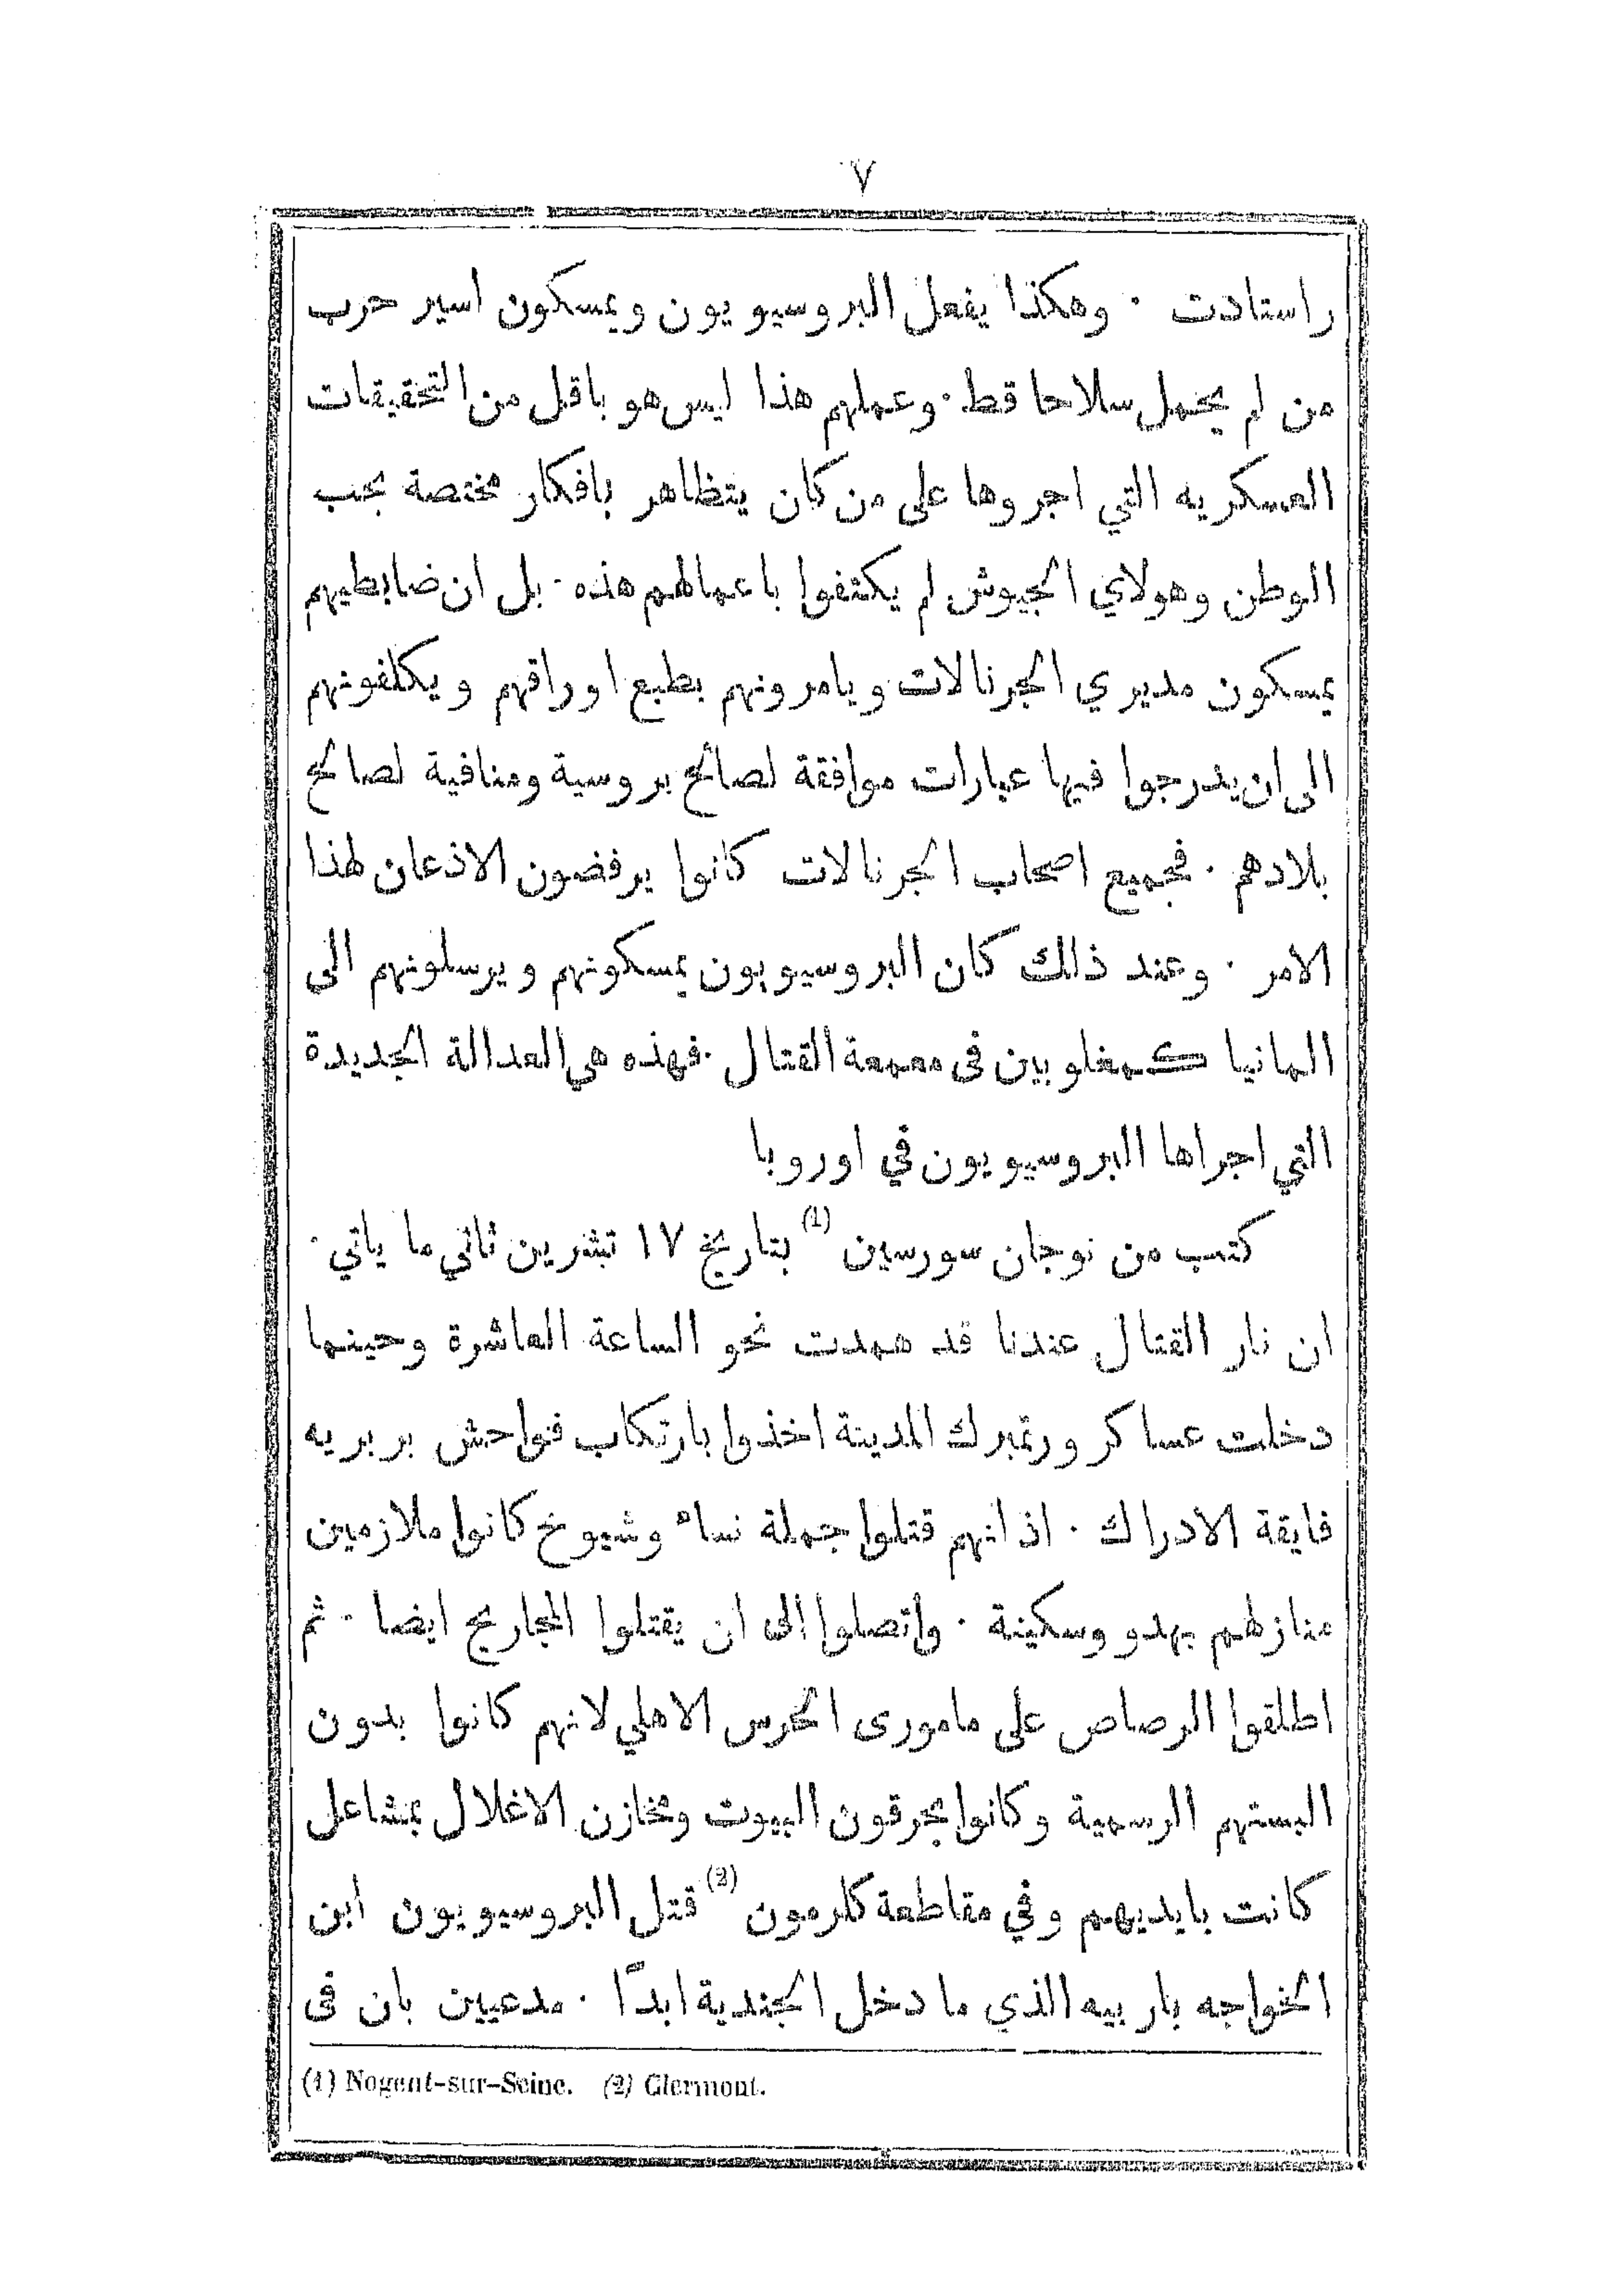 ٧
راستادت · وهكذا يفعل البروسيويون ويمسكون اسير حرب
من لم يحمل سلاحا قط · وعملهم هذا ليس هو باقل من التحقيقات
العسكريه التي اجروها على من كان يتظاهر بافكار مختصة بحب
الوطن وهولاي الجيوش لم يكتفوا باعمالهم هذه · بل ان ضابطيهم
يمسكون مديري الجرنالات ويامرونهم بطبع اوراقهم ويكلفونهم
الى ان يدرجوا فيها عبارات موافقة لصالح بروسية ومنافية لصالح
بلادهم · فجميع اصحاب الجرنالات كانوا يرفضون الاذعان لهذا
الامر · وعند ذلك كان البروسيويون يمسكونهم ويرسلونهم الى
المانيا كمغلوبين فى معمعة القتال · فهذه هي العدالة الجديدة
التي اجراها البروسيويون في اوروبا
كتب من نوجان سورسين (1) بتاريخ ١٧ تشرين ثاني ما ياتي ·
ان نار القتال عندنا قد همدت نحو الساعة العاشرة وحينما
دخلت عساكر ورتمبرك المدينة اخذوا بارتكاب فواحش بربريه
فايقة الادراك · اذ انهم قتلوا جملة نساء وشيوخ كانوا ملازمين
منازلهم بهدو وسكينة · واتصلوا الى ان يقتلوا المجاريح ايضا · ثم
اطلقوا الرصاص على مامورى الحرس الاهلي لانهم كانوا بدون
البستهم الرسمية وكانوا يحرقون البيوت ومخازن الاغلال بمشاعل
كانت بايديهم وفي مقاطعة كلرمون (2) قتل البروسيويون ابن
الخواجه باربيه الذي ما دخل الجندية ابدًا · مدعيين بان فى
(1) Nogent-sur-Seine. (2) Clermont.